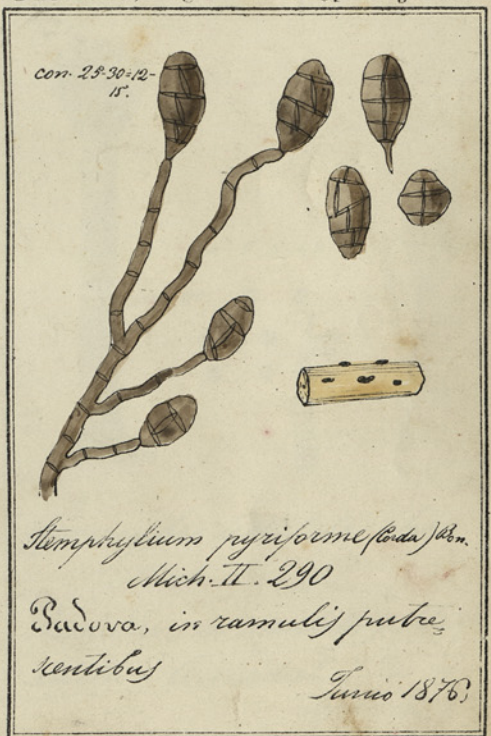 con. 25-30=12-
15.
Stemphylium pyriforme (Corda) Bon.
Mich. II. 290
Padova, in ramulis putre
scentibus
Junio 1876